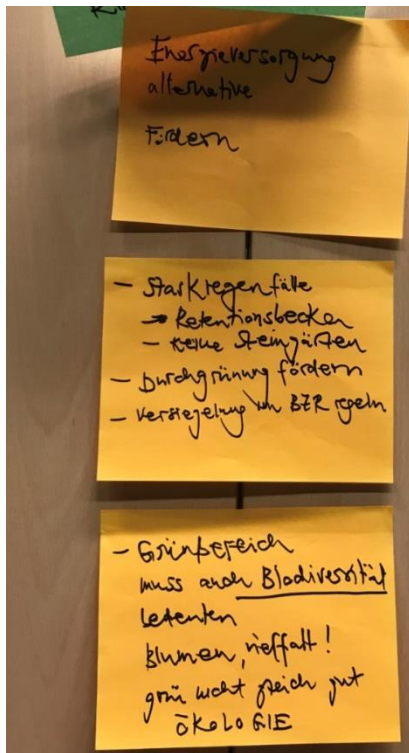 Energieversorgung
alternative
Fördern
- Starkregenfälle
→ Retentionsbecken
- keine Steingärten
- Durchgrünung fördern
- Versiegelung im BZR regeln
- Grünbereich
muss auch Biodiversität
bedeuten
Blumen, vielfalt!
grün nicht gleich gut
ÖKOLOGIE